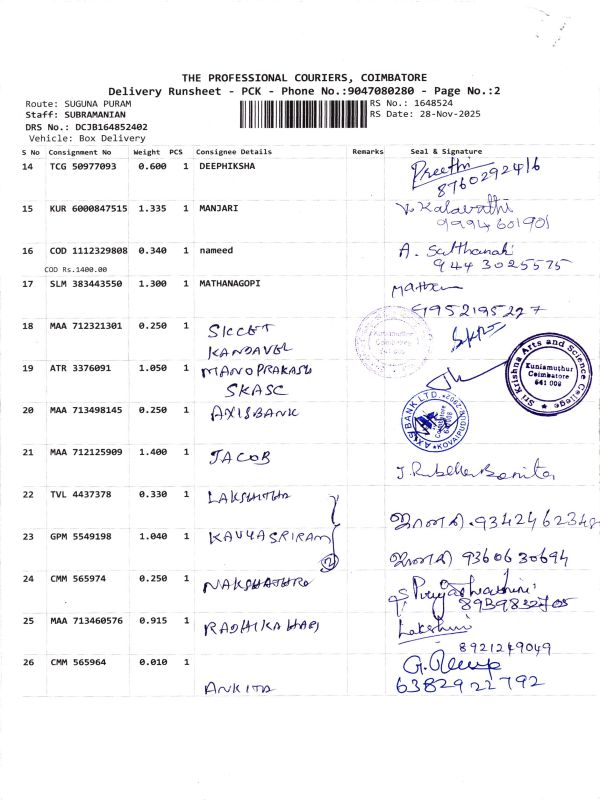 THE PROFESSIONAL COURIERS, COIMBATORE
Delivery Runsheet - PCK - Phone No.:9047080280 - Page No.:2
Route: SUGUNA PURAM
RS No.: 1648524
Staff: SUBRAMANIAN
RS Date: 28-Nov-2025
DRS No.: DCJB164852402
Vehicle: Box Delivery
S No Consignment No Weight PCS Consignee Details Remarks Seal & Signature
14 TCG 50977093 0.600 1 DEEPHIKSHA Preethi
8760292416
15 KUR 6000847515 1.335 1 MANJARI V. Kalavathi
9994601901
16 COD 1112329808 0.340 1 nameed A.
9443025575
COD Rs.1400.00
17 SLM 383443550 1.300 1 MATHANAGOPI
91952195227
18 MAA 712321301 0.250 1 SKCET
KANDAVEL
19 ATR 3376091 1.050 1 MANOPRAKASH
SKASC
Sri Krishna Arts and Science College
Kuniamuthur
Coimbatore
641 008
20 MAA 713498145 0.250 1 AXIS BANK
AXIS BANK LTD.
21 MAA 712125909 1.400 1 JACOB
22 TVL 4437378 0.330 1 LAKSHITHA
9342462348
23 GPM 5549198 1.040 1 KAVYASRIRAM
2
9360630694
24 CMM 565974 0.250 1
8939832705
25 MAA 713460576 0.915 1 RADHIKA HARI Lakshmi
8921249049
26 CMM 565964 0.010 1
ANKITA
6382922792